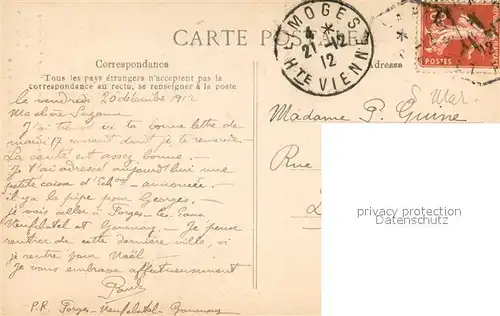 CARTE POSTALE
LIMOGES
4 *
21-12
12
HTE VIENNE
POSTES
Correspondance
Adresse
Tous les pays étrangers n'acceptent pas la
correspondance au recto, se renseigner à la poste.
Le vendredi 20 décembre 1912
Ma chère Suzanne
J'ai trouvé ici ta bonne lettre de
mardi 17 courant dont je te remercie.
La santé est assez bonne.
Je t'ai adressé aujourd'hui une
petite caisse d'Ech annoncée.
il y a la pipe pour Georges.
Je vais aller à Forges-les-Eaux
Neufchatel et Gournay. Je pense
rentrer de cette dernière ville, si
je rentre pour Noël.
Je vous embrasse affectueusement
Paul
P.R. Forges-Neufchatel-Gournay
Madame P.
Rue
privacy protection
Datenschutz